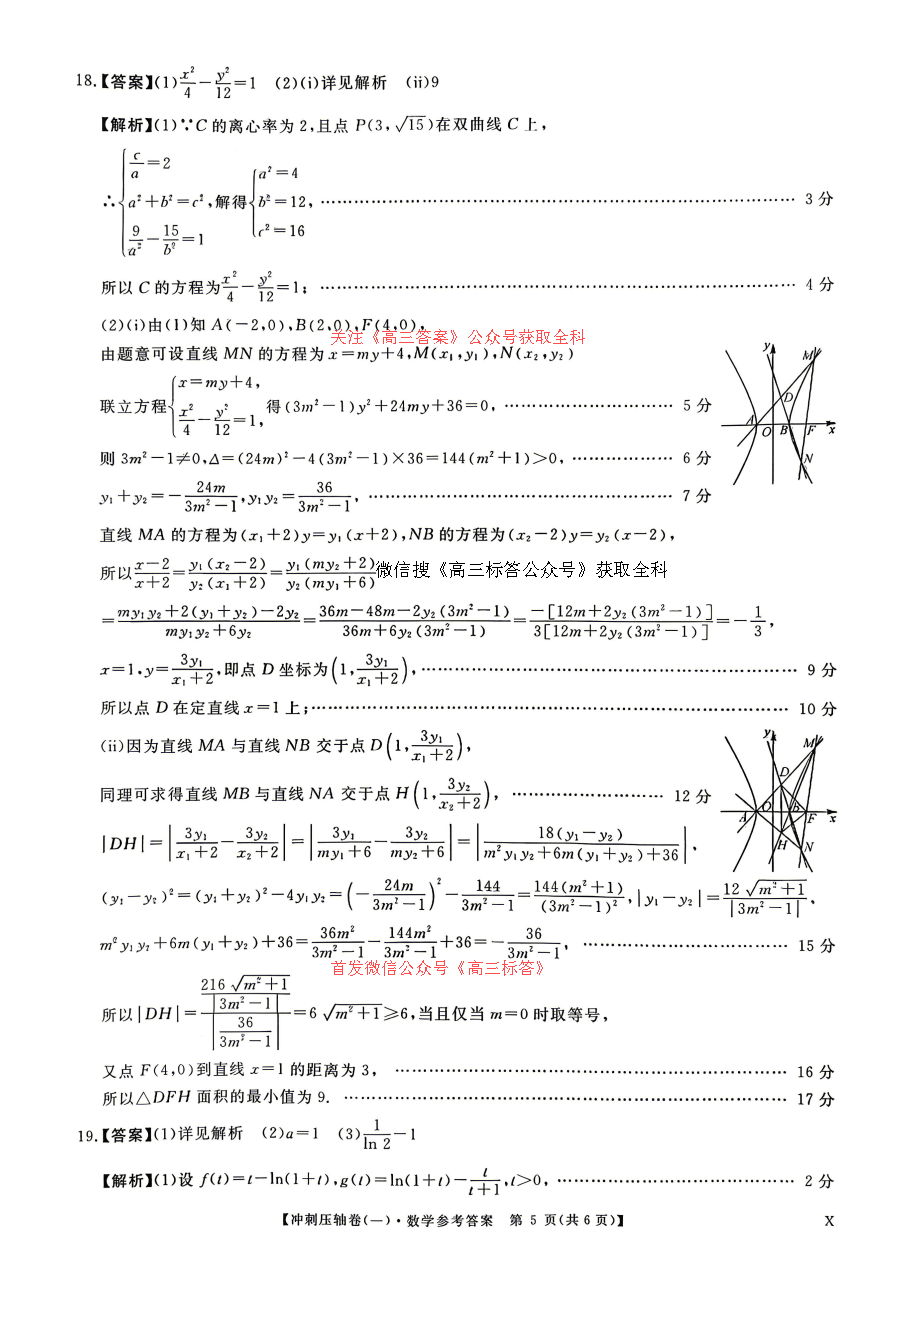 18.【答案】(1)x²/4−y²/12=1 (2)(i)详见解析 (ii)9
【解析】(1)∵C的离心率为2,且点P(3,√15)在双曲线C上,
∴{c/a=2, a²+b²=c², 9/a²−15/b²=1 ,解得{a²=4, b²=12, c²=16 ,…………3分
所以C的方程为x²/4−y²/12=1;…………4分
(2)(i)由(1)知A(−2,0),B(2,0),F(4,0),
关注《高三答案》公众号获取全科
由题意可设直线MN的方程为x=my+4,M(x₁,y₁),N(x₂,y₂)
联立方程{x=my+4, x²/4−y²/12=1, 得(3m²−1)y²+24my+36=0,…………5分
则3m²−1≠0,Δ=(24m)²−4(3m²−1)×36=144(m²+1)>0,…………6分
y₁+y₂=−24m/(3m²−1),y₁y₂=36/(3m²−1),…………7分
直线MA的方程为(x₁+2)y=y₁(x+2),NB的方程为(x₂−2)y=y₂(x−2),
所以(x−2)/(x+2)=y₁(x₂−2)/y₂(x₁+2)=y₁(my₂+2)/y₂(my₁+6)微信搜《高三标答公众号》获取全科
=(my₁y₂+2(y₁+y₂)−2y₂)/(my₁y₂+6y₂)=(36m−48m−2y₂(3m²−1))/(36m+6y₂(3m²−1))=−[12m+2y₂(3m²−1)]/3[12m+2y₂(3m²−1)]=−1/3,
x=1,y=3y₁/(x₁+2),即点D坐标为(1,3y₁/(x₁+2)),…………9分
所以点D在定直线x=1上;…………10分
(ii)因为直线MA与直线NB交于点D(1,3y₁/(x₁+2)),
同理可求得直线MB与直线NA交于点H(1,3y₂/(x₂+2)),…………12分
|DH|=|3y₁/(x₁+2)−3y₂/(x₂+2)|=|3y₁/(my₁+6)−3y₂/(my₂+6)|=|18(y₁−y₂)/(m²y₁y₂+6m(y₁+y₂)+36)|,
(y₁−y₂)²=(y₁+y₂)²−4y₁y₂=(−24m/(3m²−1))²−144/(3m²−1)=144(m²+1)/(3m²−1)²,|y₁−y₂|=12√(m²+1)/|3m²−1|,
m²y₁y₂+6m(y₁+y₂)+36=36m²/(3m²−1)−144m²/(3m²−1)+36=−36/(3m²−1),…………15分
首发微信公众号《高三标答》
所以|DH|=(216√(m²+1)/|3m²−1|)/|36/(3m²−1)|=6√(m²+1)≥6,当且仅当m=0时取等号,
又点F(4,0)到直线x=1的距离为3,…………16分
所以△DFH面积的最小值为9.…………17分
19.【答案】(1)详见解析 (2)a=1 (3)1/ln2−1
【解析】(1)设f(t)=t−ln(1+t),g(t)=ln(1+t)−t/(t+1),t>0,…………2分
【冲刺压轴卷(一)·数学参考答案 第5页(共6页)】 X
y M D A O B F x N
y M D A O B F x H N